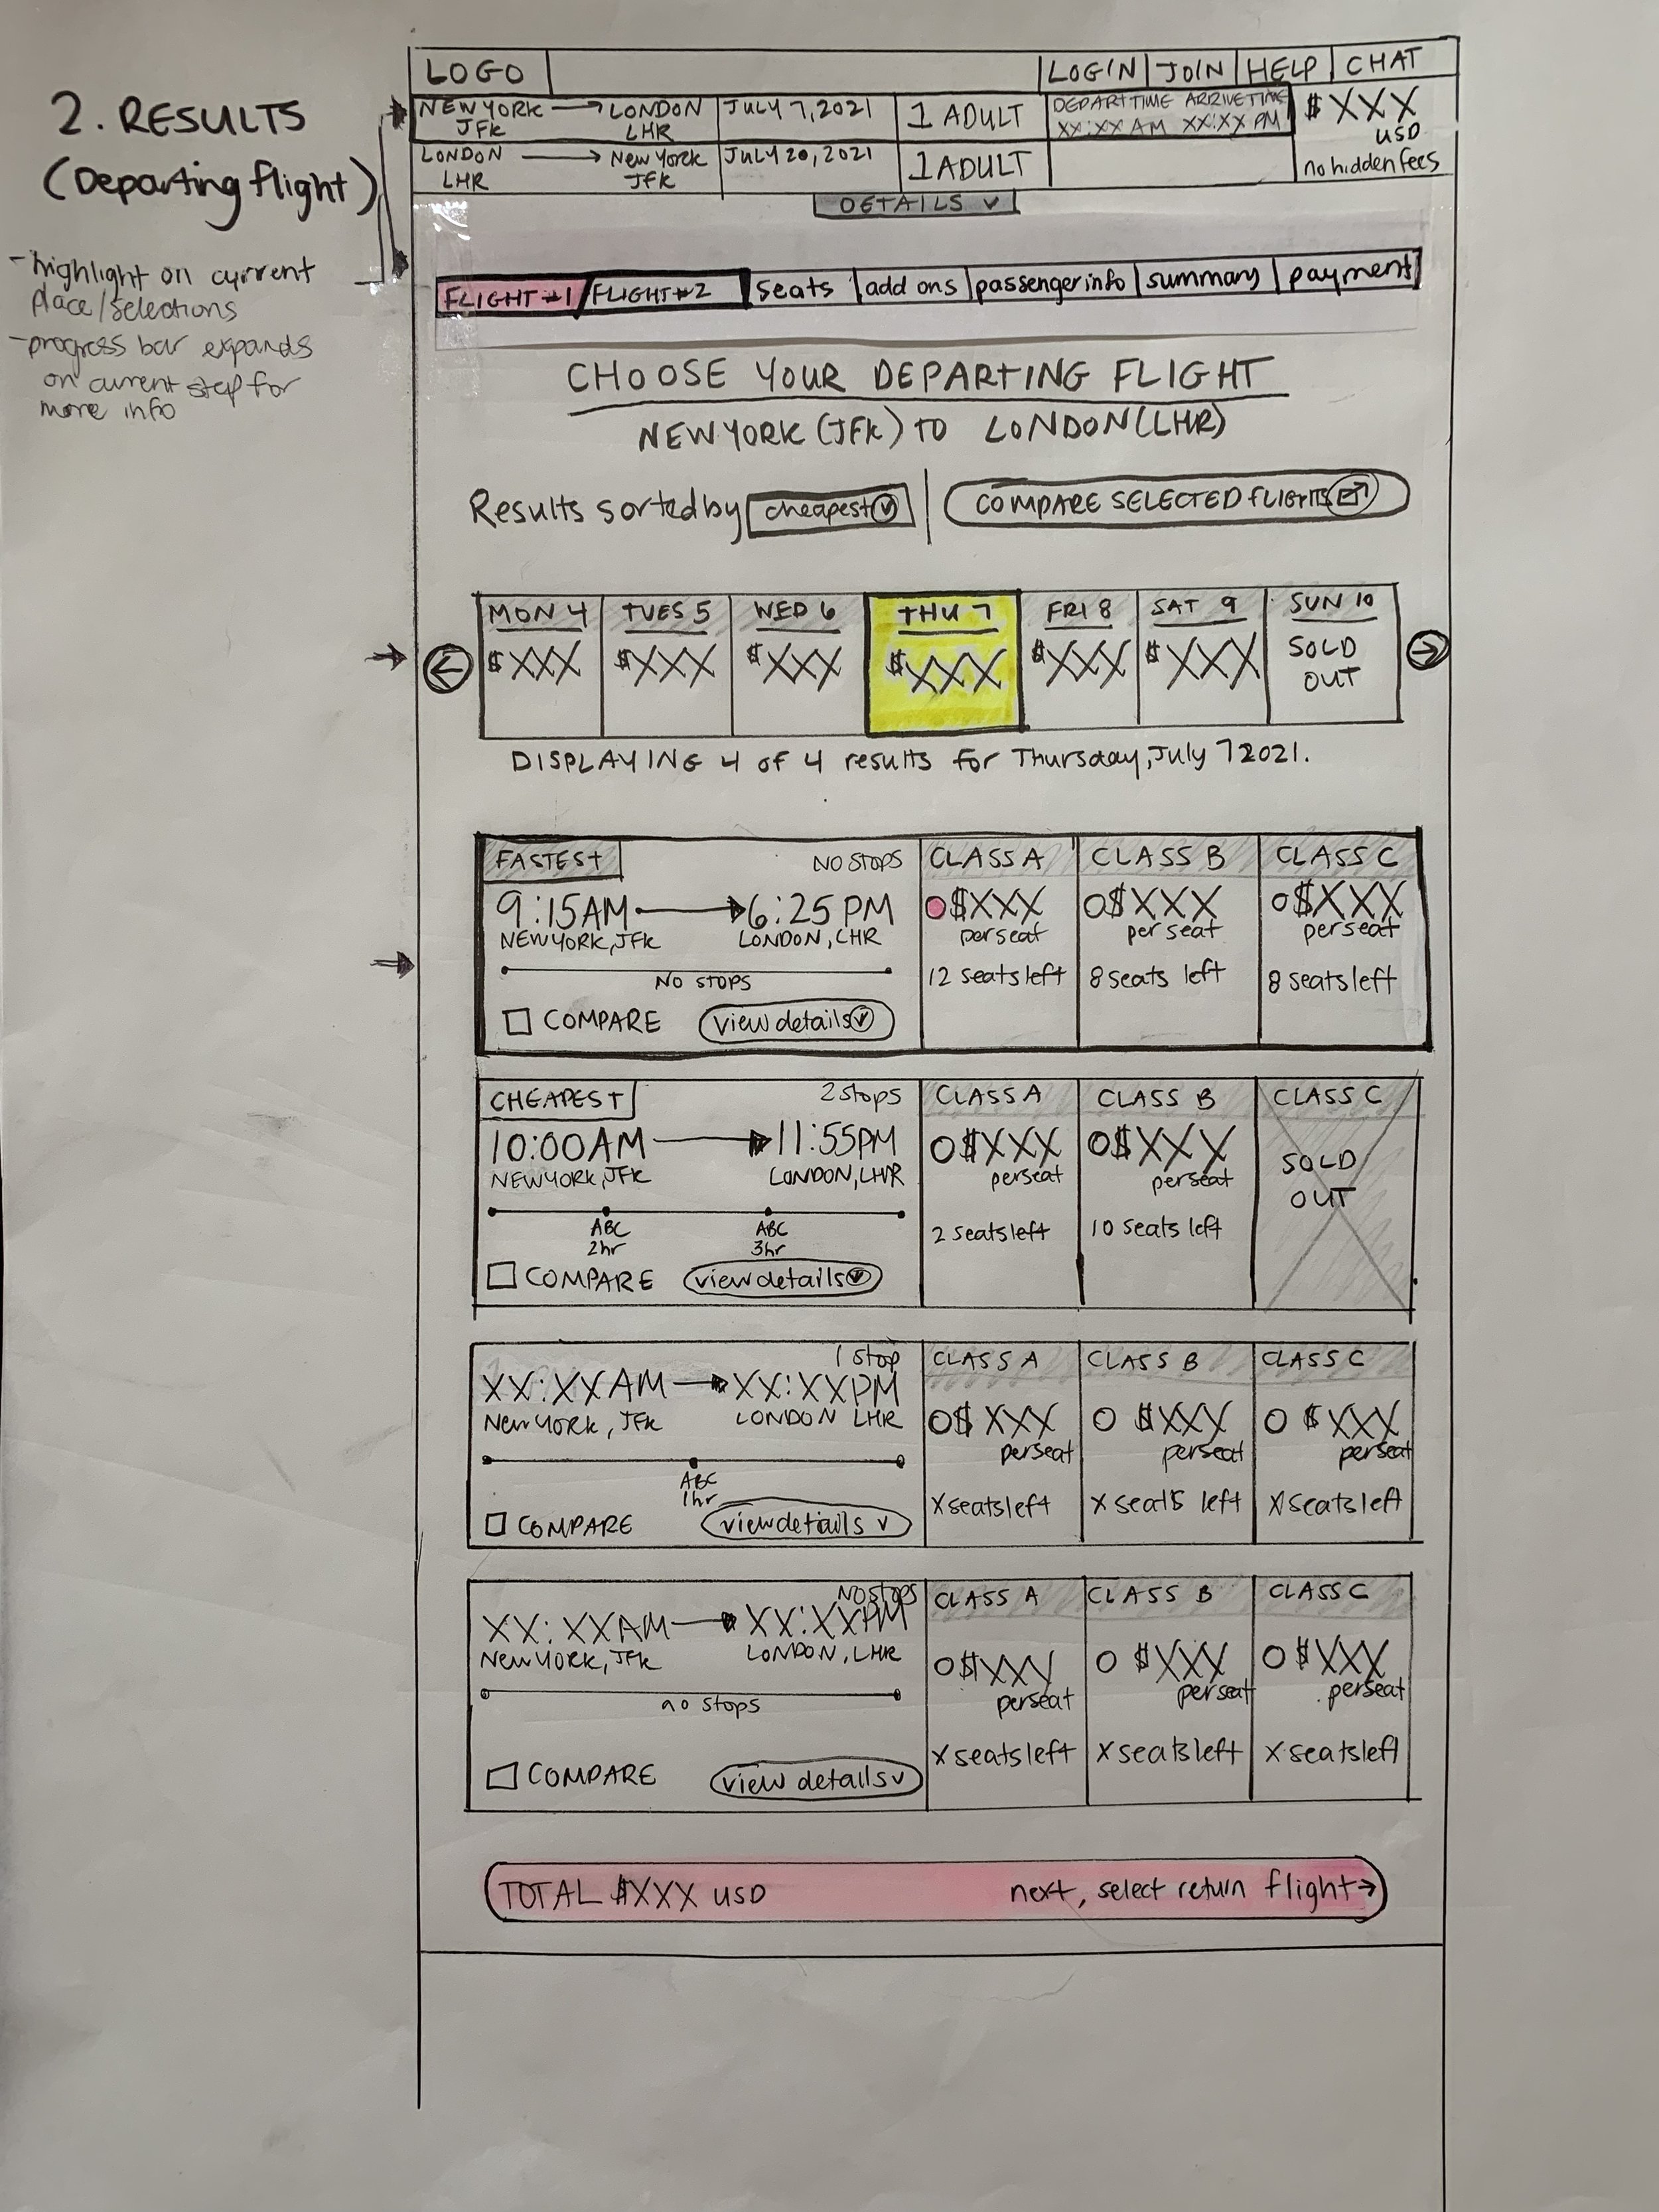 2. RESULTS
(Departing flight)
- highlight on current
place/selections
- progress bar expands
on current step for
more info
LOGO LOGIN JOIN HELP CHAT
NEW YORK LONDON JULY 7, 2021 1 ADULT DEPART TIME ARRIVE TIME $XXX
JFK LHR XX:XX AM XX:XX PM USD
LONDON New York JULY 20, 2021 1 ADULT no hidden fees
LHR JFK
DETAILS
FLIGHT #1 FLIGHT #2 seats add ons passenger info summary payment
CHOOSE YOUR DEPARTING FLIGHT
NEW YORK (JFK) TO LONDON (LHR)
Results sorted by cheapest COMPARE SELECTED FLIGHTS
MON 4 TUES 5 WED 6 THU 7 FRI 8 SAT 9 SUN 10
$XXX $XXX $XXX $XXX $XXX $XXX SOLD
OUT
DISPLAYING 4 of 4 results for Thursday, July 7 2021.
FASTEST NO STOPS CLASS A CLASS B CLASS C
9:15AM 6:25 PM $XXX $XXX $XXX
NEW YORK, JFK LONDON, LHR per seat per seat per seat
NO STOPS 12 seats left 8 seats left 8 seats left
COMPARE view details
CHEAPEST 2 stops CLASS A CLASS B CLASS C
10:00AM 11:55PM $XXX $XXX SOLD
NEW YORK, JFK LONDON, LHR per seat per seat OUT
ABC ABC 2 seats left 10 seats left
2hr 3hr
COMPARE view details
1 stop CLASS A CLASS B CLASS C
XX:XX AM XX:XX PM $XXX $XXX $XXX
New YORK, JFK LONDON LHR per seat per seat per seat
ABC
1hr X seats left X seats left X seats left
COMPARE view details
No stops CLASS A CLASS B CLASS C
XX:XX AM XX:XX PM $XXX $XXX $XXX
New YORK, JFK LONDON, LHR per seat per seat per seat
no stops X seats left X seats left X seats left
COMPARE view details
TOTAL $XXX USD next, select return flight→